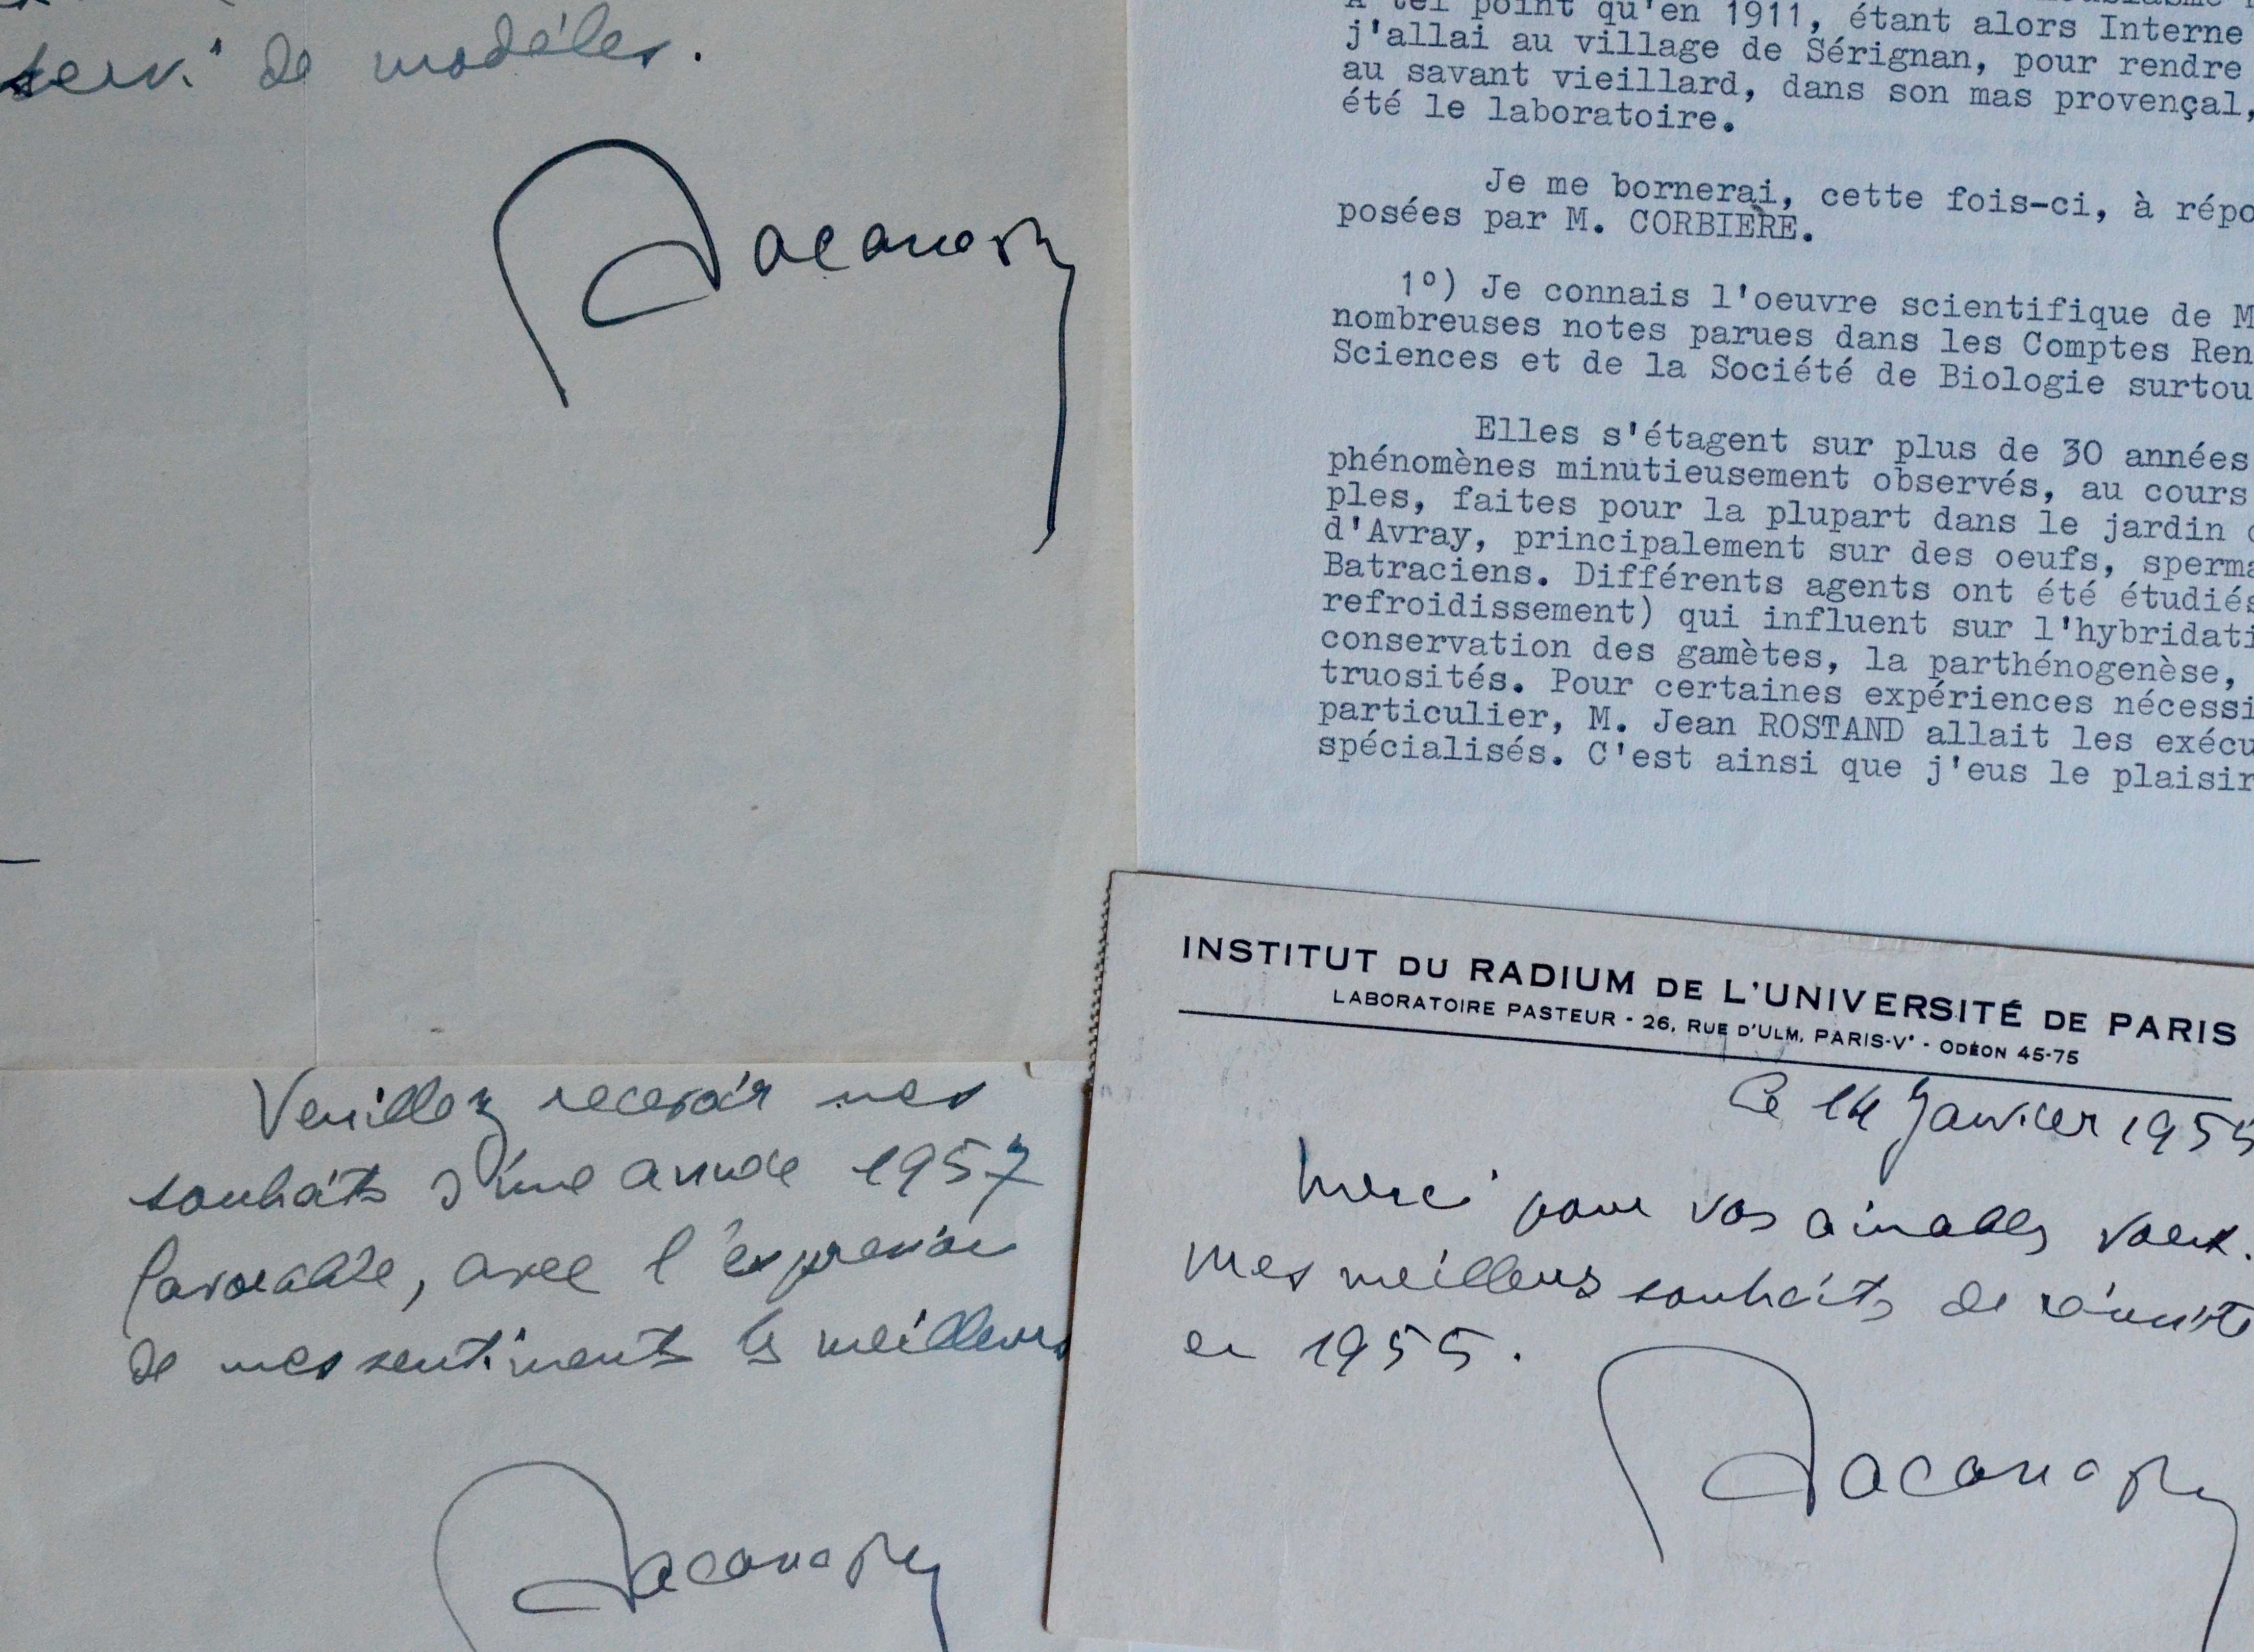 servi de modèles.
Lacassagne
A tel point qu'en 1911, étant alors Interne
j'allai au village de Sérignan, pour rendre
au savant vieillard, dans son mas provençal,
été le laboratoire.
Je me bornerai, cette fois-ci, à répo
posées par M. CORBIERE.
1º) Je connais l'oeuvre scientifique de M
nombreuses notes parues dans les Comptes Ren
Sciences et de la Société de Biologie surtou
Elles s'étagent sur plus de 30 années
phénomènes minutieusement observés, au cours
ples, faites pour la plupart dans le jardin
d'Avray, principalement sur des oeufs, sperma
Batraciens. Différents agents ont été étudiés
refroidissement) qui influent sur l'hybridati
conservation des gamètes, la parthénogenèse,
truosités. Pour certaines expériences nécessi
particulier, M. Jean ROSTAND allait les exécu
spécialisés. C'est ainsi que j'eus le plaisir
Veuillez recevoir mes
souhaits d'une année 1957
favorable, avec l'expression
de mes sentiments les meilleurs
Lacassagne
INSTITUT DU RADIUM DE L'UNIVERSITÉ DE PARIS
LABORATOIRE PASTEUR - 26, RUE D'ULM, PARIS-Vᵉ - ODÉON 45-75
Ce 14 Janvier 1955
Merci pour vos aimables vœux.
Mes meilleurs souhaits de réussite
en 1955.
Lacassagne